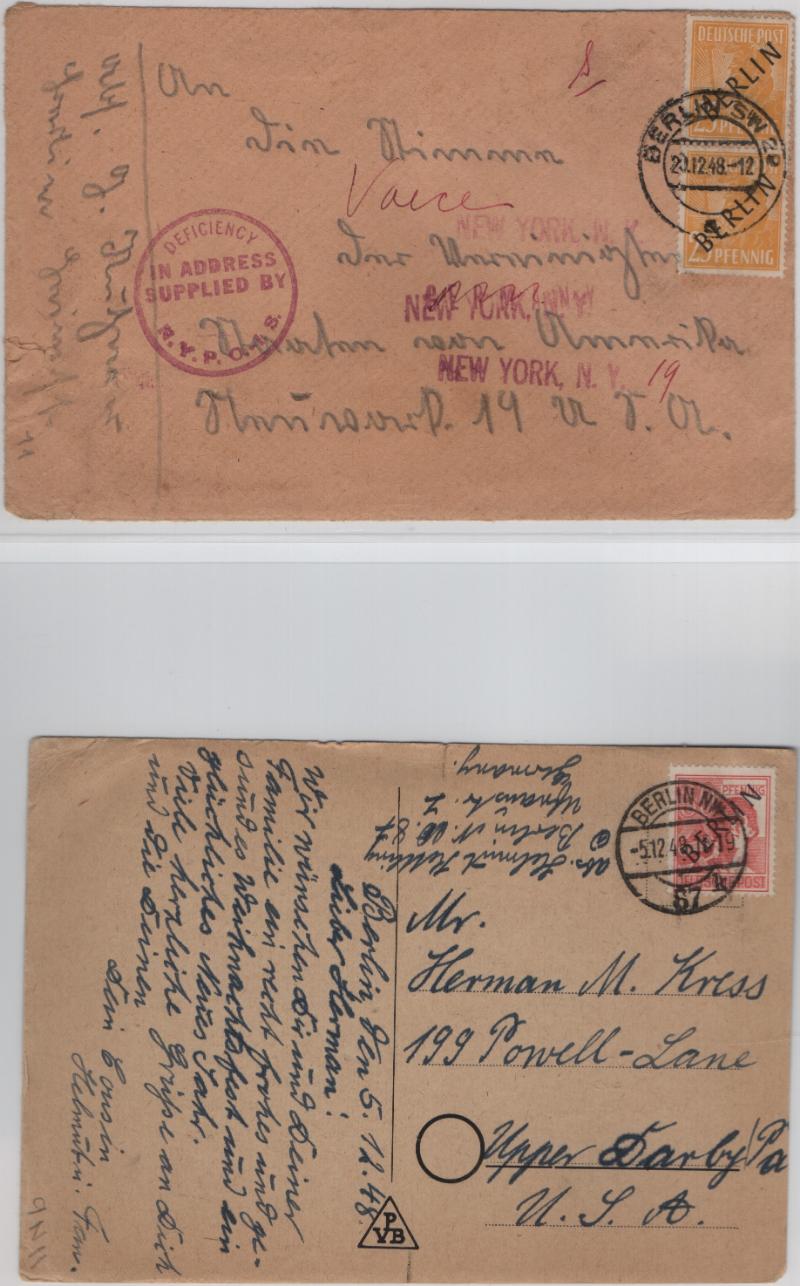 An
die Stimme
Voice
der Vereinigten
Staaten von Amerika
Neuwark. 19 U. S. A.
DEUTSCHE POST
BERLIN
25 PFENNIG
BERLIN
BERLIN SW
12.48.-12
DEFICIENCY
IN ADDRESS
SUPPLIED BY
N.Y.P.O.
NEW YORK, N.Y.
NEW YORK, N.Y.
NEW YORK, N. Y. 19
Abs.
11
Berlin, den 5. 12. 48.
Lieber Herman!
Wir wünschen Dir und Deiner
Familie ein recht frohes und ge-
sundes Weihnachtsfest und ein
glückliches Neues Jahr.
Viele herzliche Grüße an Dich
und die Deinen
Dein Cousin
Helmut u. Fam.
abs. Helmut
Berlin N.W. 87
Germany.
PFENNIG
BERLIN
DEUTSCHE POST
BERLIN NW
-5.12.48
87
Mr.
Herman M. Kress
199 Powell-Lane
Upper Darby/Pa
U. S. A.
P
VB
9N11